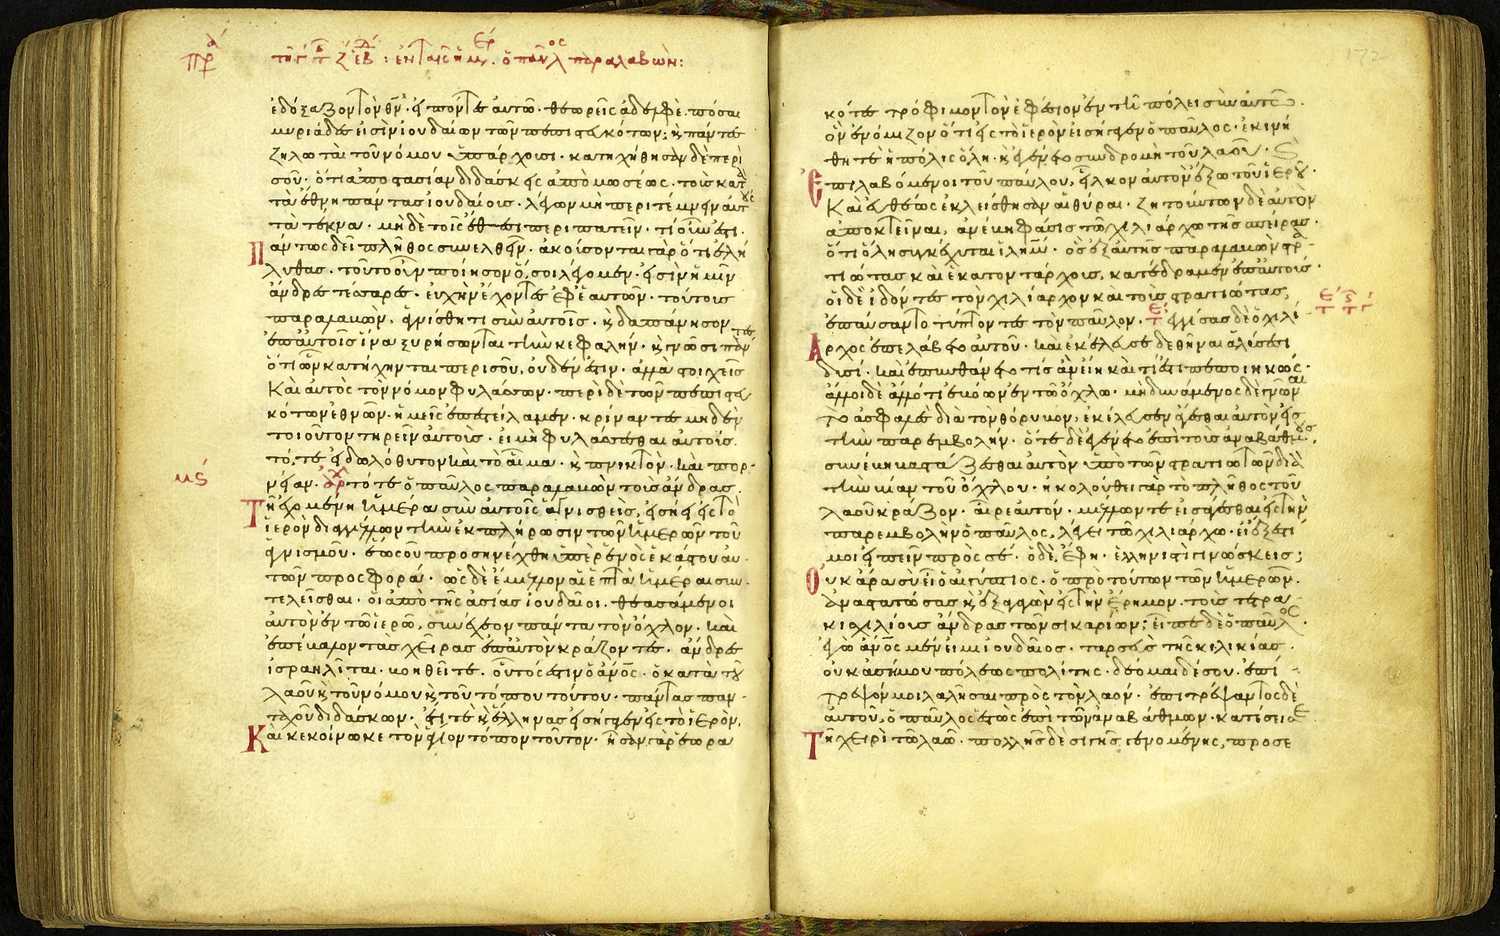 ἐδόξαζον τὸν θν· εἶπόν τε αὐτῶ· θεωρεῖς ἀδελφέ· πόσαι
μυριάδες εἰσὶν ἰουδαίων τῶν πεπιστευκότων· κ πάντες
ζηλωταὶ τοῦ νόμου ὑπάρχουσι· κατηχήθησαν δὲ περὶ
σοῦ· ὅτι ἀποστασίαν διδάσκεις ἀπὸ μωσέως· τοὺς κατ
τὰ ἔθνη πάντας ἰουδαίους· λέγων μὴ περιτέμνειν αὐτοὺς
τὰ τέκνα· μὴ δὲ τοῖς ἔθεσι περιπατεῖν· τί οὖν ἐστι·
πάντως δεῖ πλῆθος συνελθεῖν· ἀκούσονται γὰρ ὅτι ἐλή
λυθας· τοῦτο οὖν ποίησον ὅ σοι λέγομεν· εἰσὶν ἡμῖν
ἄνδρες τέσσαρες· εὐχὴν ἔχοντες ἐφ ἑαυτῶν· τούτους
παραλαβὼν· ἁγνίσθητι σὺν αὐτοῖς· κ δαπάνησον
ἐπ αὐτοῖς ἵνα ξυρήσωνται τὴν κεφαλήν· κ γνῶσι πάντες
ὅτι ὧν κατήχηνται περὶ σοῦ, οὐδέν ἐστιν· ἀλλὰ στοιχεῖς
καὶ αὐτὸς τὸν νόμον φυλάσσων· περὶ δὲ τῶν πεπιστευ
κότων ἐθνῶν· ἡμεῖς ἐπεστείλαμεν· κρίναντες μηδὲν
τοιοῦτον τηρεῖν αὐτοὺς· εἰ μὴ φυλάσσεσθαι αὐτοὺς
τό, τε εἰδωλόθυτον καὶ τὸ αἷμα· κ πνικτὸν· καὶ πορ-
νείαν· τότε ὁ παῦλος παραλαβὼν τοὺς ἄνδρας
τῆ ἐχομένη ἡμέρα σὺν αὐτοῖς ἁγνισθεὶς, εἰσήει εἰς τὸ
ἱερὸν διαγγέλλων τὴν ἐκπλήρωσιν τῶν ἡμερῶν τοῦ
ἁγνισμοῦ· ἕως οὗ προσηνέχθη ὑπὲρ ἑνὸς ἑκάστου αὐ
τῶν προσφορά· ὡς δὲ ἔμελλον αἱ ἑπτὰ ἡμέραι συν
τελεῖσθαι· οἱ ἀπὸ τῆς ἀσίας ἰουδαῖοι· θεασάμενοι
αὐτὸν ἐν τῶ ἱερῶ, συνέχεον πάντα τὸν ὄχλον· καὶ
ἐπέβαλον τὰς χεῖρας ἐπ αὐτὸν κράζοντες· ἄνδρες
ἰσραηλῖται· βοηθεῖτε· οὗτός ἐστιν ὁ ἄνος· ὁ κατὰ τοῦ
λαοῦ κ τοῦ νόμου κ τοῦ τόπου τούτου· πάντας παν-
ταχοῦ διδάσκων· ἔτι τε κ ἕλληνας εἰσήγαγεν εἰς τὸ ἱερὸν,
καὶ κεκοίνωκε τὸν ἅγιον τόπον τοῦτον· ἦσαν γὰρ ἑωρα
κότες τρόφιμον τὸν ἐφέσιον ἐν τῆ πόλει σὺν αὐτῶ·
ὃν ἐνόμιζον ὅτι εἰς τὸ ἱερὸν εἰσήγαγεν ὁ παῦλος· ἐκινή
θη τε ἡ πόλις ὅλη· κ ἐγένετο συνδρομὴ τοῦ λαοῦ·
ἐπιλαβόμενοι τοῦ παύλου, εἷλκον αὐτὸν ἔξω τοῦ ἱεροῦ·
καὶ εὐθέως ἐκλείσθησαν αἱ θύραι· ζητούντων δὲ αὐτὸν
ἀποκτεῖναι, ἀνέβη φάσις τῶ χιλιάρχω τῆς σπείρας·
ὅτι ὅλη συγκέχυται ἱλημ· ὃς ἐξαυτῆς παραλαβὼν στρα
τιώτας καὶ ἑκατοντάρχους, κατέδραμεν ἐπ αὐτούς·
οἱ δὲ ἰδόντες τὸν χιλίαρχον καὶ τοὺς στρατιώτας,
ἐπαύσαντο τύπτοντες τὸν παῦλον· ἐγγίσας δὲ ὁ χιλί-
αρχος ἐπελάβετο αὐτοῦ· καὶ ἐκέλευσε δεθῆναι ἁλύσεσι
δυσί· καὶ ἐπυνθάνετο τίς ἂν εἴη καὶ τί ἐστι πεποιηκώς·
ἄλλοι δὲ ἄλλό τι ἐβόων ἐν τῶ ὄχλω· μὴ δυνάμενος δὲ γνῶναι
τὸ ἀσφαλὲς διὰ τὸν θόρυβον, ἐκέλευσεν ἄγεσθαι αὐτὸν εἰς
τὴν παρεμβολήν· ὅτε δὲ ἐγένετο ἐπὶ τοὺς ἀναβαθμοὺς,
συνέβη βαστάζεσθαι αὐτὸν ὑπὸ τῶν στρατιωτῶν διὰ
τὴν βίαν τοῦ ὄχλου· ἠκολούθει γὰρ τὸ πλῆθος τοῦ
λαοῦ κράζον· αἶρε αὐτόν· μέλλων τε εἰσάγεσθαι εἰς τὴν
παρεμβολὴν ὁ παῦλος, λέγει τῶ χιλιάρχω· εἰ ἔξεστί
μοι εἰπεῖν πρὸς σέ· ὁ δὲ, ἔφη· ἑλληνιστὶ γινώσκεις;
οὐκ ἄρα σὺ εἶ ὁ αἰγύπτιος· ὁ πρὸ τούτων τῶν ἡμερῶν·
ἀναστατώσας κ ἐξαγαγὼν εἰς τὴν ἔρημον· τοὺς τετρα-
κισχιλίους ἄνδρας τῶν σικαρίων; εἶπε δὲ ὁ παῦλος·
ἐγὼ ἄνος μέν εἰμι ἰουδαῖος· ταρσεὺς τῆς κιλικίας·
οὐκ ἀσήμου πόλεως πολίτης· δέομαι δέ σου· ἐπί-
τρεψόν μοι λαλῆσαι πρὸς τὸν λαόν· ἐπιτρέψαντος δὲ
αὐτοῦ, ὁ παῦλος ἑστὼς ἐπὶ τῶν ἀναβαθμῶν· κατέσεισε
τῆ χειρὶ τῶ λαῶ· πολλῆς δὲ σιγῆς γενομένης, προσε
172